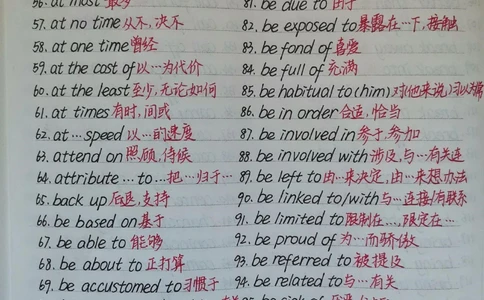 56. at most 最多
57. at no time 从不,决不
58. at one time 曾经
59. at the cost of 以…为代价
60. at the least 至少,无论如何
61. at times 有时,间或
62. at…speed 以…的速度
63. attend on 照顾,侍候
64. attribute…to…把…归于…
65. back up 后退,支持
66. be based on 基于
67. be able to 能够
68. be about to 正打算
69. be accustomed to 习惯于
81. be due to 由于
82. be exposed to 暴露在…下,接触
83. be fond of 喜爱
84. be full of 充满
85. be habitual to (him) 对(他来说)习以为常
86. be in order 合适,恰当
87. be involved in 参于,参加
88. be involved with 涉及,与…有关连
89. be left to 由…来决定,由…来想办法
90. be linked to/with 与…连接/有联系
91. be limited to 限制在…,限定在…
92. be proud of 为…而骄傲
93. be referred to 被提及
94. be related to 与…有关